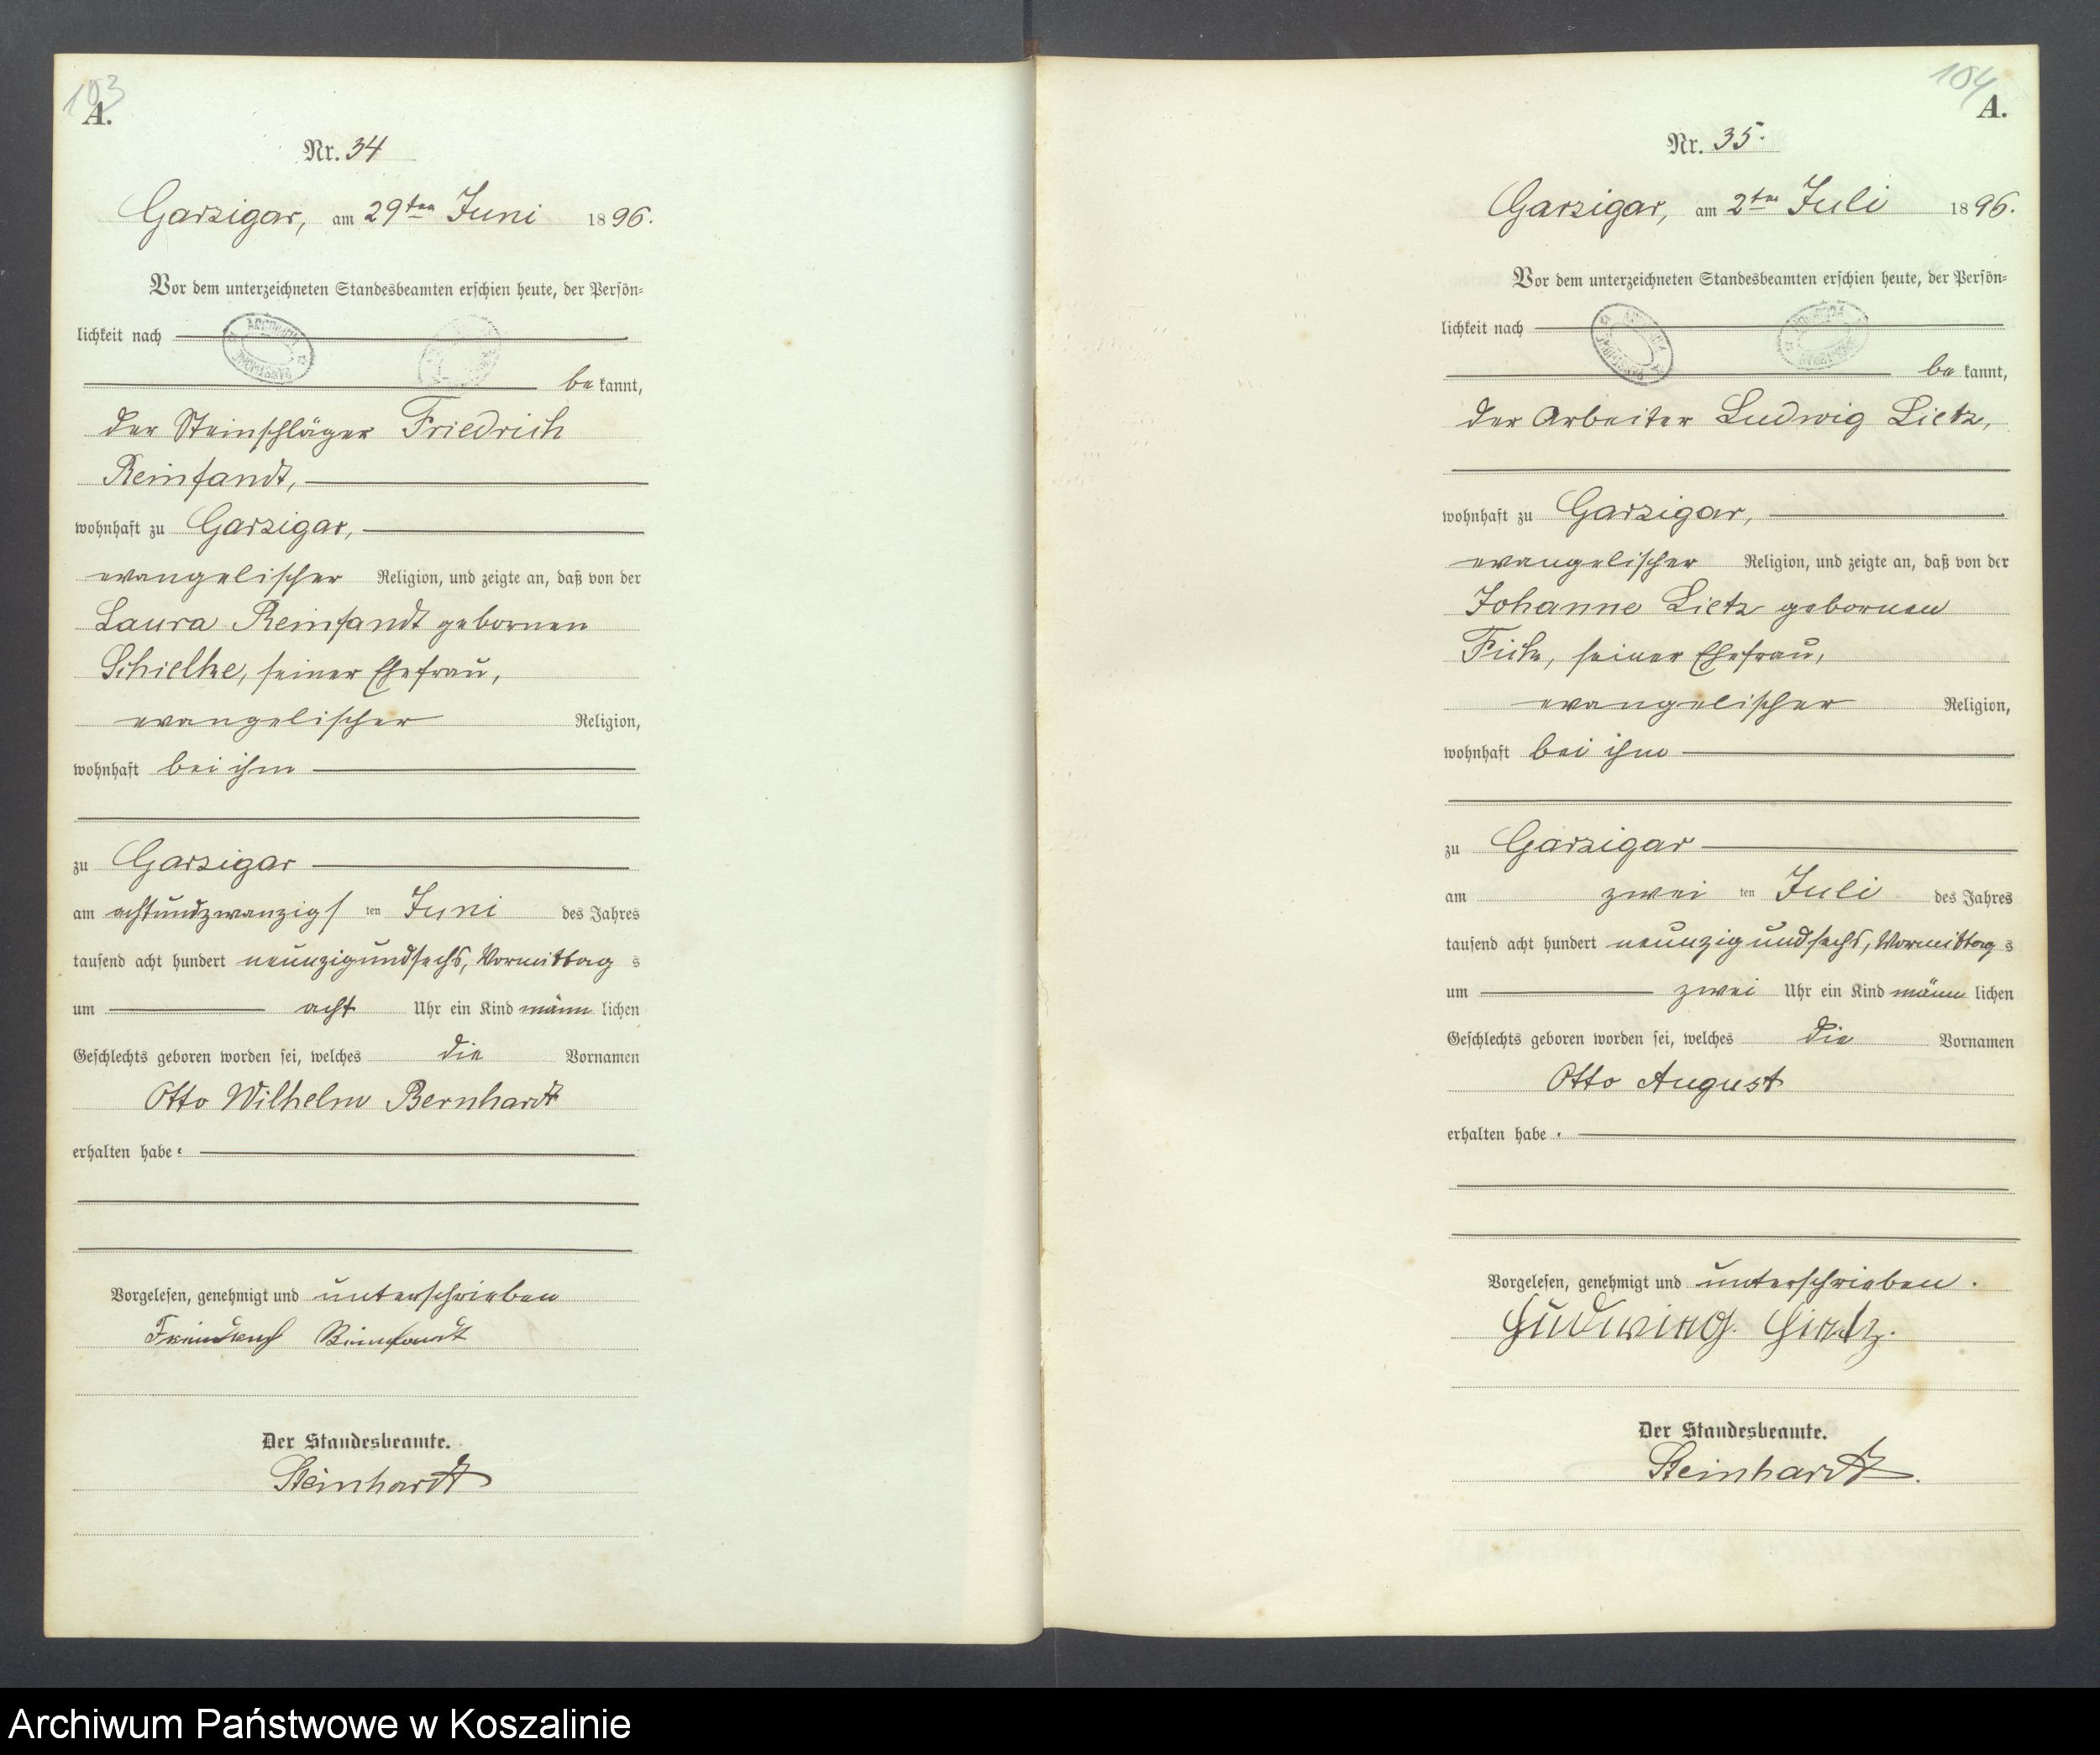 103
A.
Nr. 34
Garzigar, am 29ten Juni 1896.
Vor dem unterzeichneten Standesbeamten erschien heute, der Persön-
lichkeit nach
be kannt,
der Steinschläger Friedrich
Reinfandt,
wohnhaft zu Garzigar,
evangelischer Religion, und zeigte an, daß von der
Laura Reinfandt gebornen
Schielke, seiner Ehefrau,
evangelischer Religion,
wohnhaft bei ihm
zu Garzigar
am achtundzwanzigsten Juni des Jahres
tausend acht hundert neunzigundsechs, Vormittags
um acht Uhr ein Kind männlichen
Geschlechts geboren worden sei, welches die Vornamen
Otto Wilhelm Bernhardt
erhalten habe.
Vorgelesen, genehmigt und unterschrieben
Reinfandt
Der Standesbeamte.
Steinhardt
104
A.
Nr. 35.
Garzigar, am 2ten Juli 1896.
Vor dem unterzeichneten Standesbeamten erschien heute, der Persön-
lichkeit nach
be kannt,
der Arbeiter Ludwig Lietz,
wohnhaft zu Garzigar,
evangelischer Religion, und zeigte an, daß von der
Johanne Lietz gebornen
Fick, seiner Ehefrau,
evangelischer Religion,
wohnhaft bei ihm
zu Garzigar
am zweiten Juli des Jahres
tausend acht hundert neunzigundsechs, Vormittags
um zwei Uhr ein Kind männlichen
Geschlechts geboren worden sei, welches die Vornamen
Otto August
erhalten habe.
Vorgelesen, genehmigt und unterschrieben.
Ludwig Lietz.
Der Standesbeamte.
Steinhardt.
Archiwum Państwowe w Koszalinie